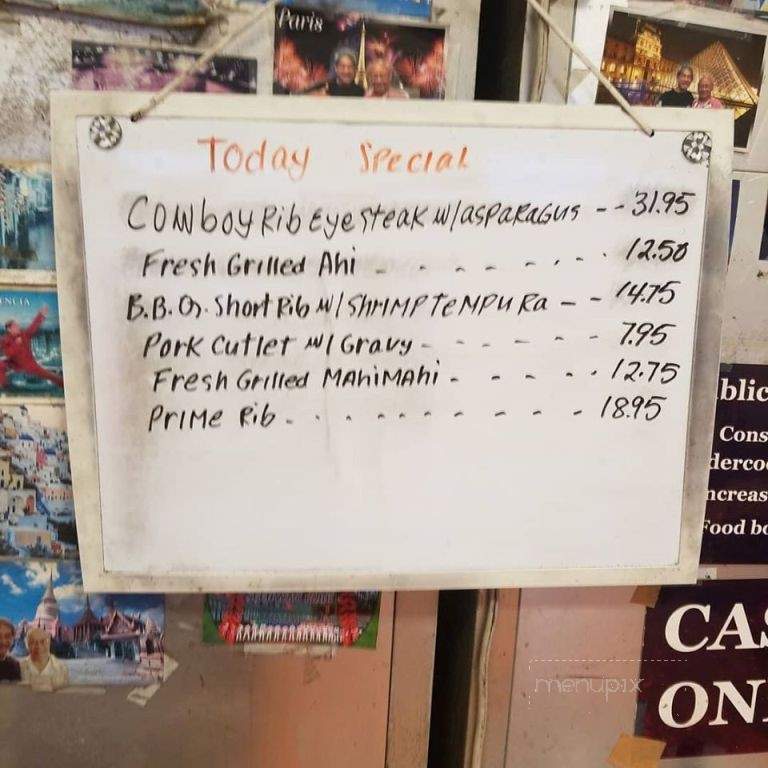 Paris
Today Special
Cowboy Rib Eye Steak w/asparagus -- 31.95
Fresh Grilled Ahi - - - - - - - 12.50
B.B.Q. Short Rib w/Shrimp Tempura -- 14.75
Pork Cutlet w/Gravy - - - - - - 7.95
Fresh Grilled MahiMahi - - - - - 12.75
Prime Rib - - - - - - - - - - 18.95
ENCIA
blic
Cons
derco
ncreas
Food bo
CAS
ON
menupix